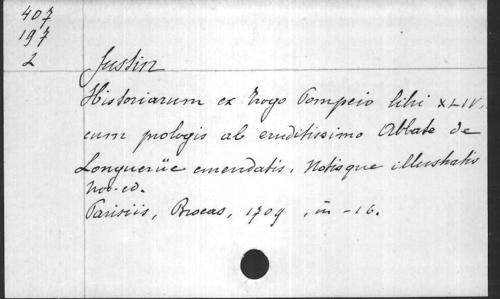 407
197
2
Justin
Historiarum ex Trogo Pompeio libri XLIV,
cum prologis ab eruditissimo Abbate de
Longuerüe emendatis, Notisque illustratis
nov. ed.
Parisiis, Brocas, 1709, in-16.